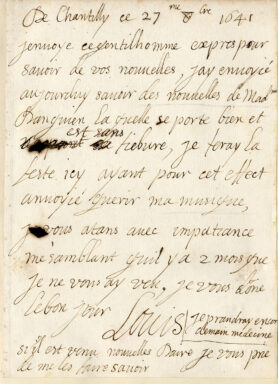 De Chantilly ce 27 me 8 bre 1641
jenvoye ce gentilhomme expres pour
savoir de vos nouvelles, jay envoyé
aujourduy savoir des nouvelles de Mad
Danguien la quelle se porte bien et
est sans
fiebure, je feray la
feste icy ayant pour cet effect
anvoyé querir ma musique,
je vous atans avec impatiance
me samblant quil y a 2 mois que
je ne vous ay veu, je vous done
le bon jour
Louis
je prandray encore
demain medecine
sil est venu nouvelles Daire je vous prie
de me les faire savoir